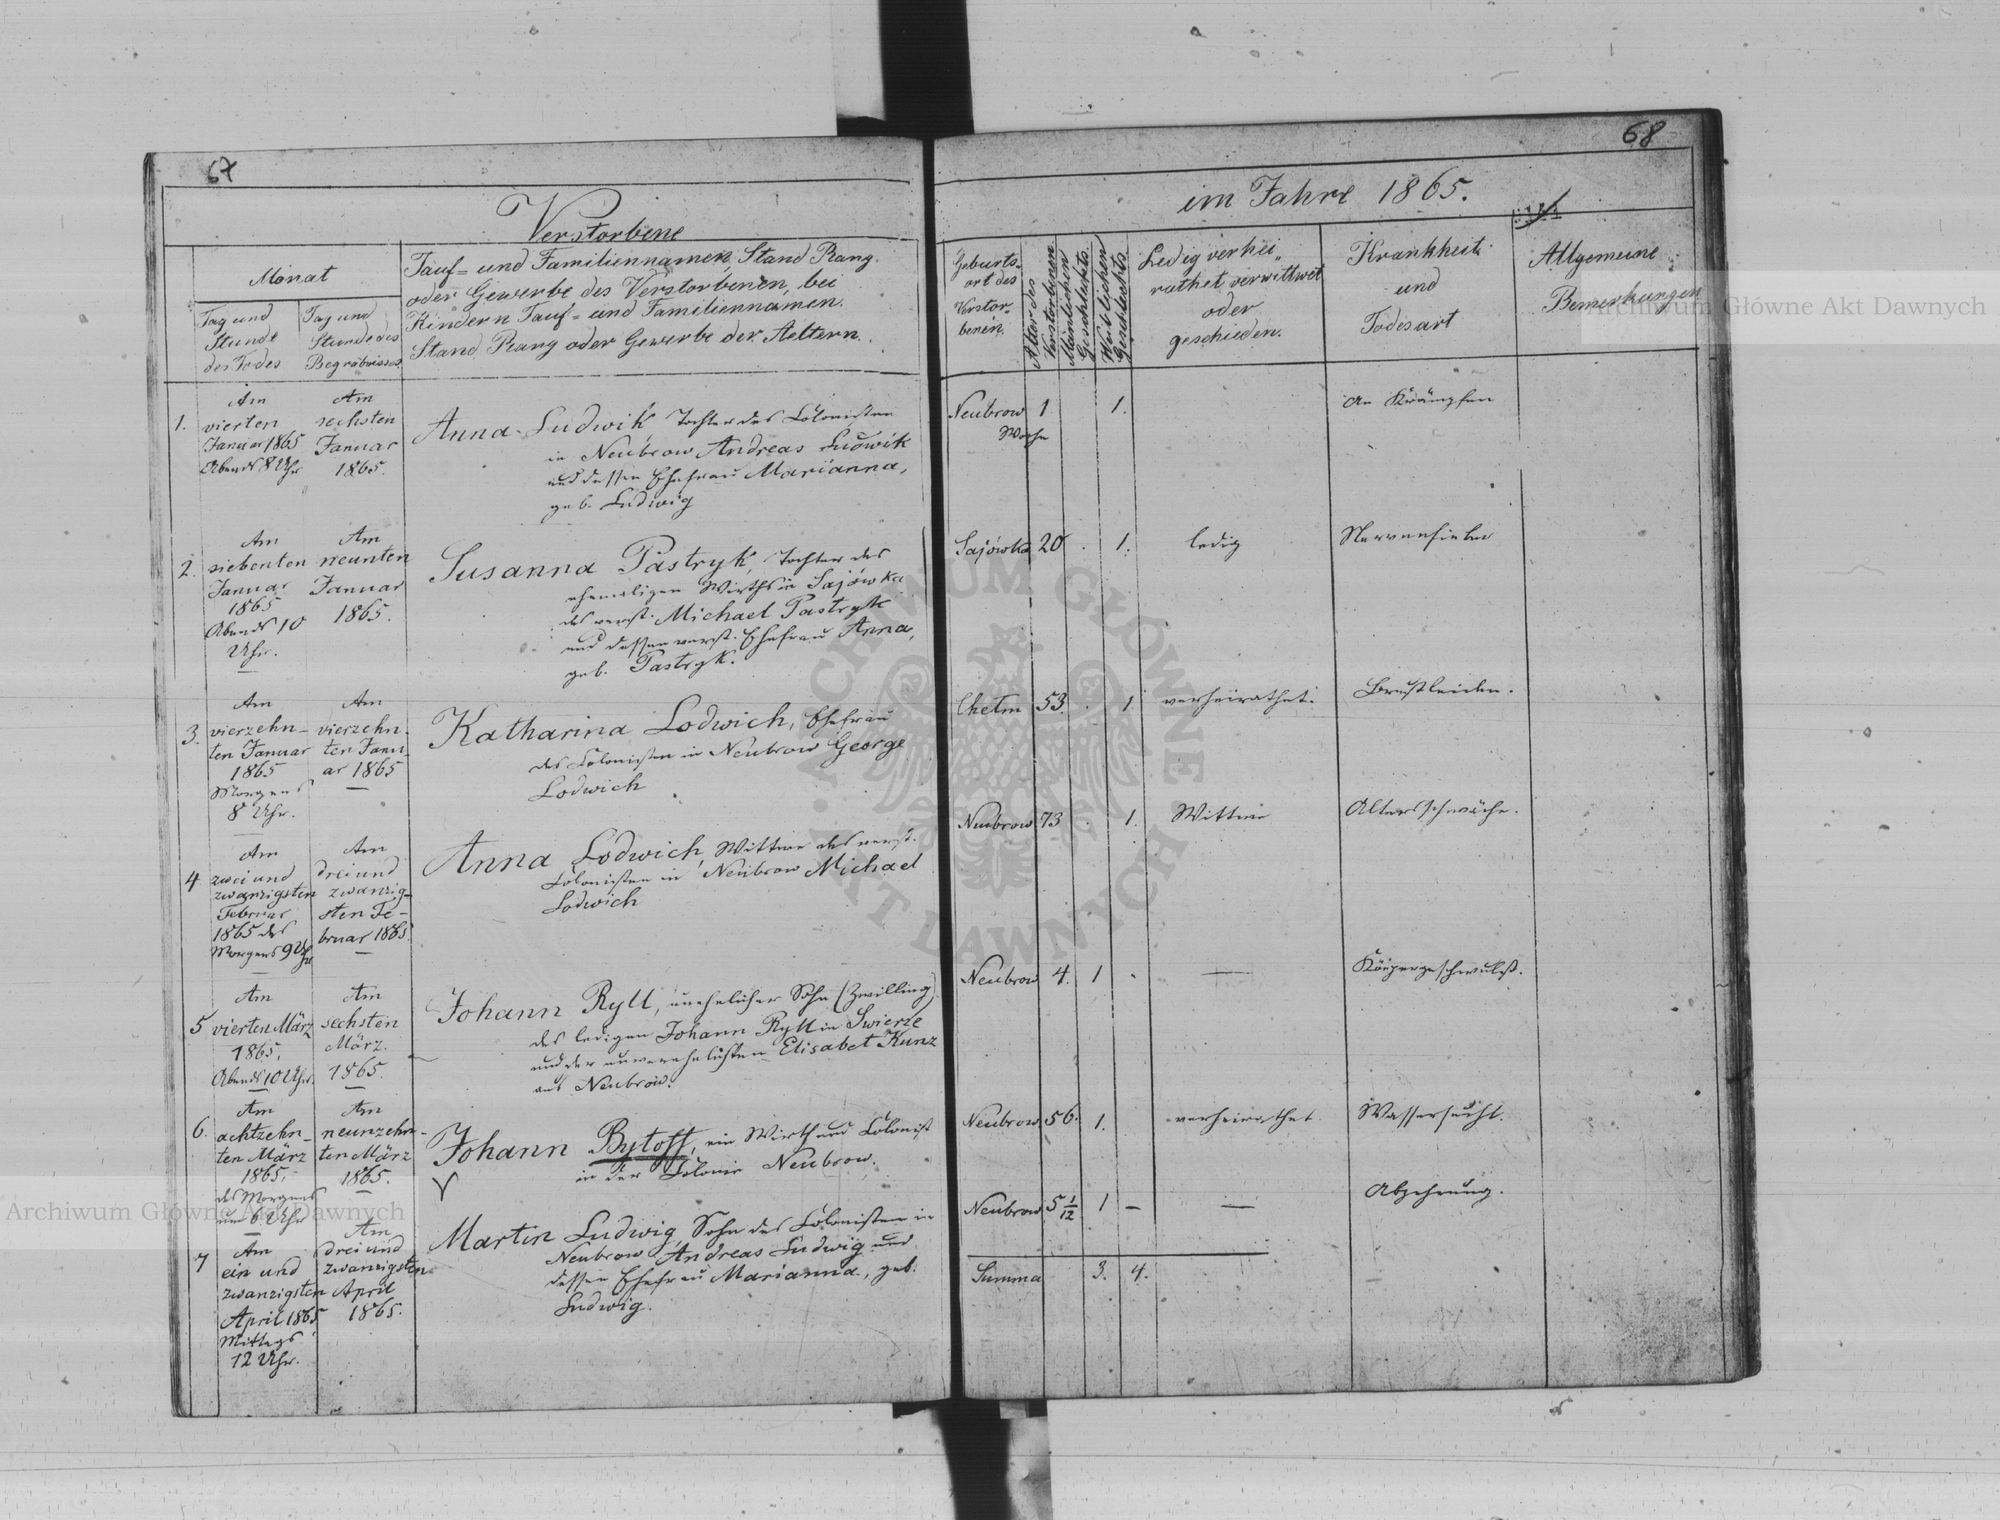 67
Verstorbene
Monat
Tag und
Stunde
des Todes
Tag und
Stunde des
Begräbnisses
Tauf- und Familiennamen, Stand Rang
oder Gewerbe des Verstorbenen, bei
Kindern Tauf- und Familiennamen.
Stand Rang oder Gewerbe der Aeltern.
1.
Am
vierten
Januar 1865
Abends 8 Uhr
Am
sechsten
Januar
1865.
Anna Ludwik Tochter des Colonisten
in Neubrow Andreas Ludwik
und dessen Ehefrau Marianna,
geb. Ludwig
2.
Am
siebenten
Januar
1865
Abends 10
Uhr.
Am
neunten
Januar
1865.
Susanna Pastryk, Tochter des
ehemaligen Wirths in Sajówka
des verst. Michael Pastryk
und dessen verst. Ehefrau Anna,
geb. Pastryk.
3.
Am
vierzehn-
ten Januar
1865
Morgens
8 Uhr.
Am
vierzehn-
ten Janu-
ar 1865
Katharina Lodwich, Ehefrau
des Colonisten in Neubrow George
Lodwich
4
Am
zwei und
zwanzigsten
Februar
1865 des
Morgens 9 Uhr
Am
drei und
zwanzig-
sten Fe-
bruar 1865.
Anna Lodwich, Wittwe des verst.
Colonisten in Neubrow Michael
Lodwich
5
Am
vierten März
1865,
Abends 10 Uhr.
Am
sechsten
März.
1865.
Johann Ryll, unehelicher Sohn (Zwilling)
des ledigen Johann Ryll in Swierze
und der unverehelichten Elisabet Kunz
aus Neubrow.
6.
Am
achtzehn-
ten März
1865,
des Morgens
um 6 Uhr
Am
neunzehn-
ten März
1865.
Johann Bytoff, ein Wirth und Colonist
in der Colonie Neubrow.
7
Am
ein und
zwanzigsten
April 1865
Mittags
12 Uhr.
Am
drei und
zwanzigsten
April
1865.
Martin Ludwig, Sohn des Colonisten in
Neubrow Andreas Ludwig und
dessen Ehefrau Marianna, geb.
Ludwig.
68
im Jahre 1865.
Geburts-
ort des
Verstor-
benen.
Alter des
Verstorbenen
Männlichen
Geschlechts.
Weiblichen
Geschlechts.
Ledig verhei-
rathet verwittwet
oder
geschieden.
Krankheit
und
Todesart
Allgemeine
Bemerkungen
Neubrow 1 1.
Woche
An Krämpfen
Sajówka 20 . 1. ledig Nervenfieber
Chełm 53. . 1. verheirathet. Brustleiden.
Neubrow 73 . 1. Wittwe Altersschwäche.
Neubrow 4. 1 . — Körpergeschwulst.
Neubrow 56. 1. verheirathet Wassersucht.
Neubrow 5 1/12 1 — — Abzehrung.
Summa 3. 4.
Archiwum Główne Akt Dawnych
Archiwum Główne Akt Dawnych
ARCHIWUM GŁÓWNE AKT DAWNYCH